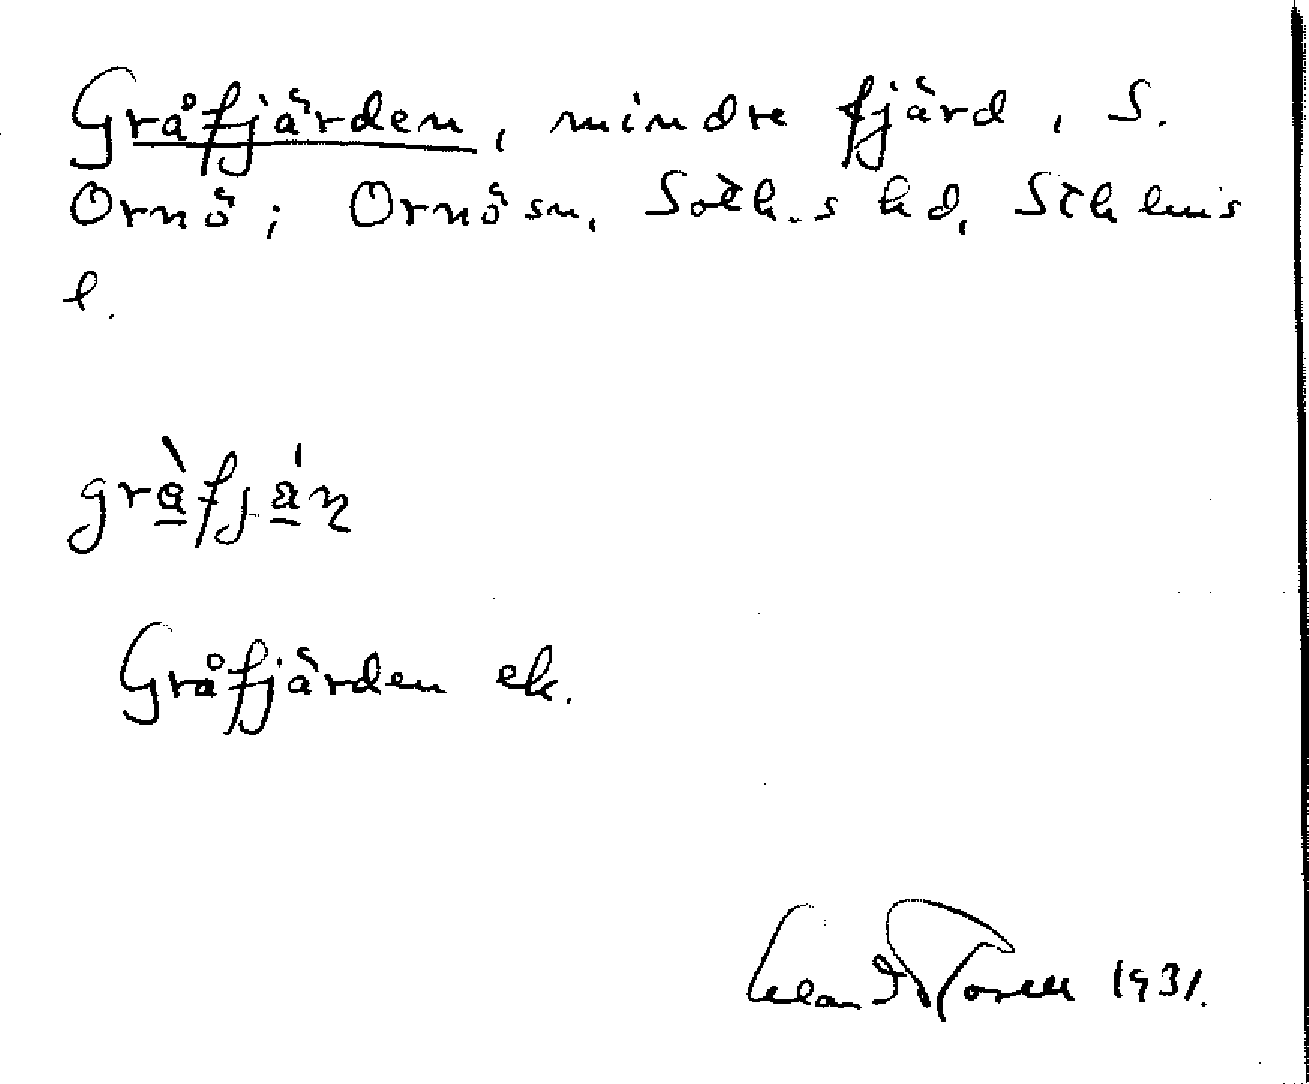 Gråfjärden, mindre fjärd, S.
Ornö; Ornö sn, Soth.s hd, Sthlms
l.
Gråfjärden ek.
1931.